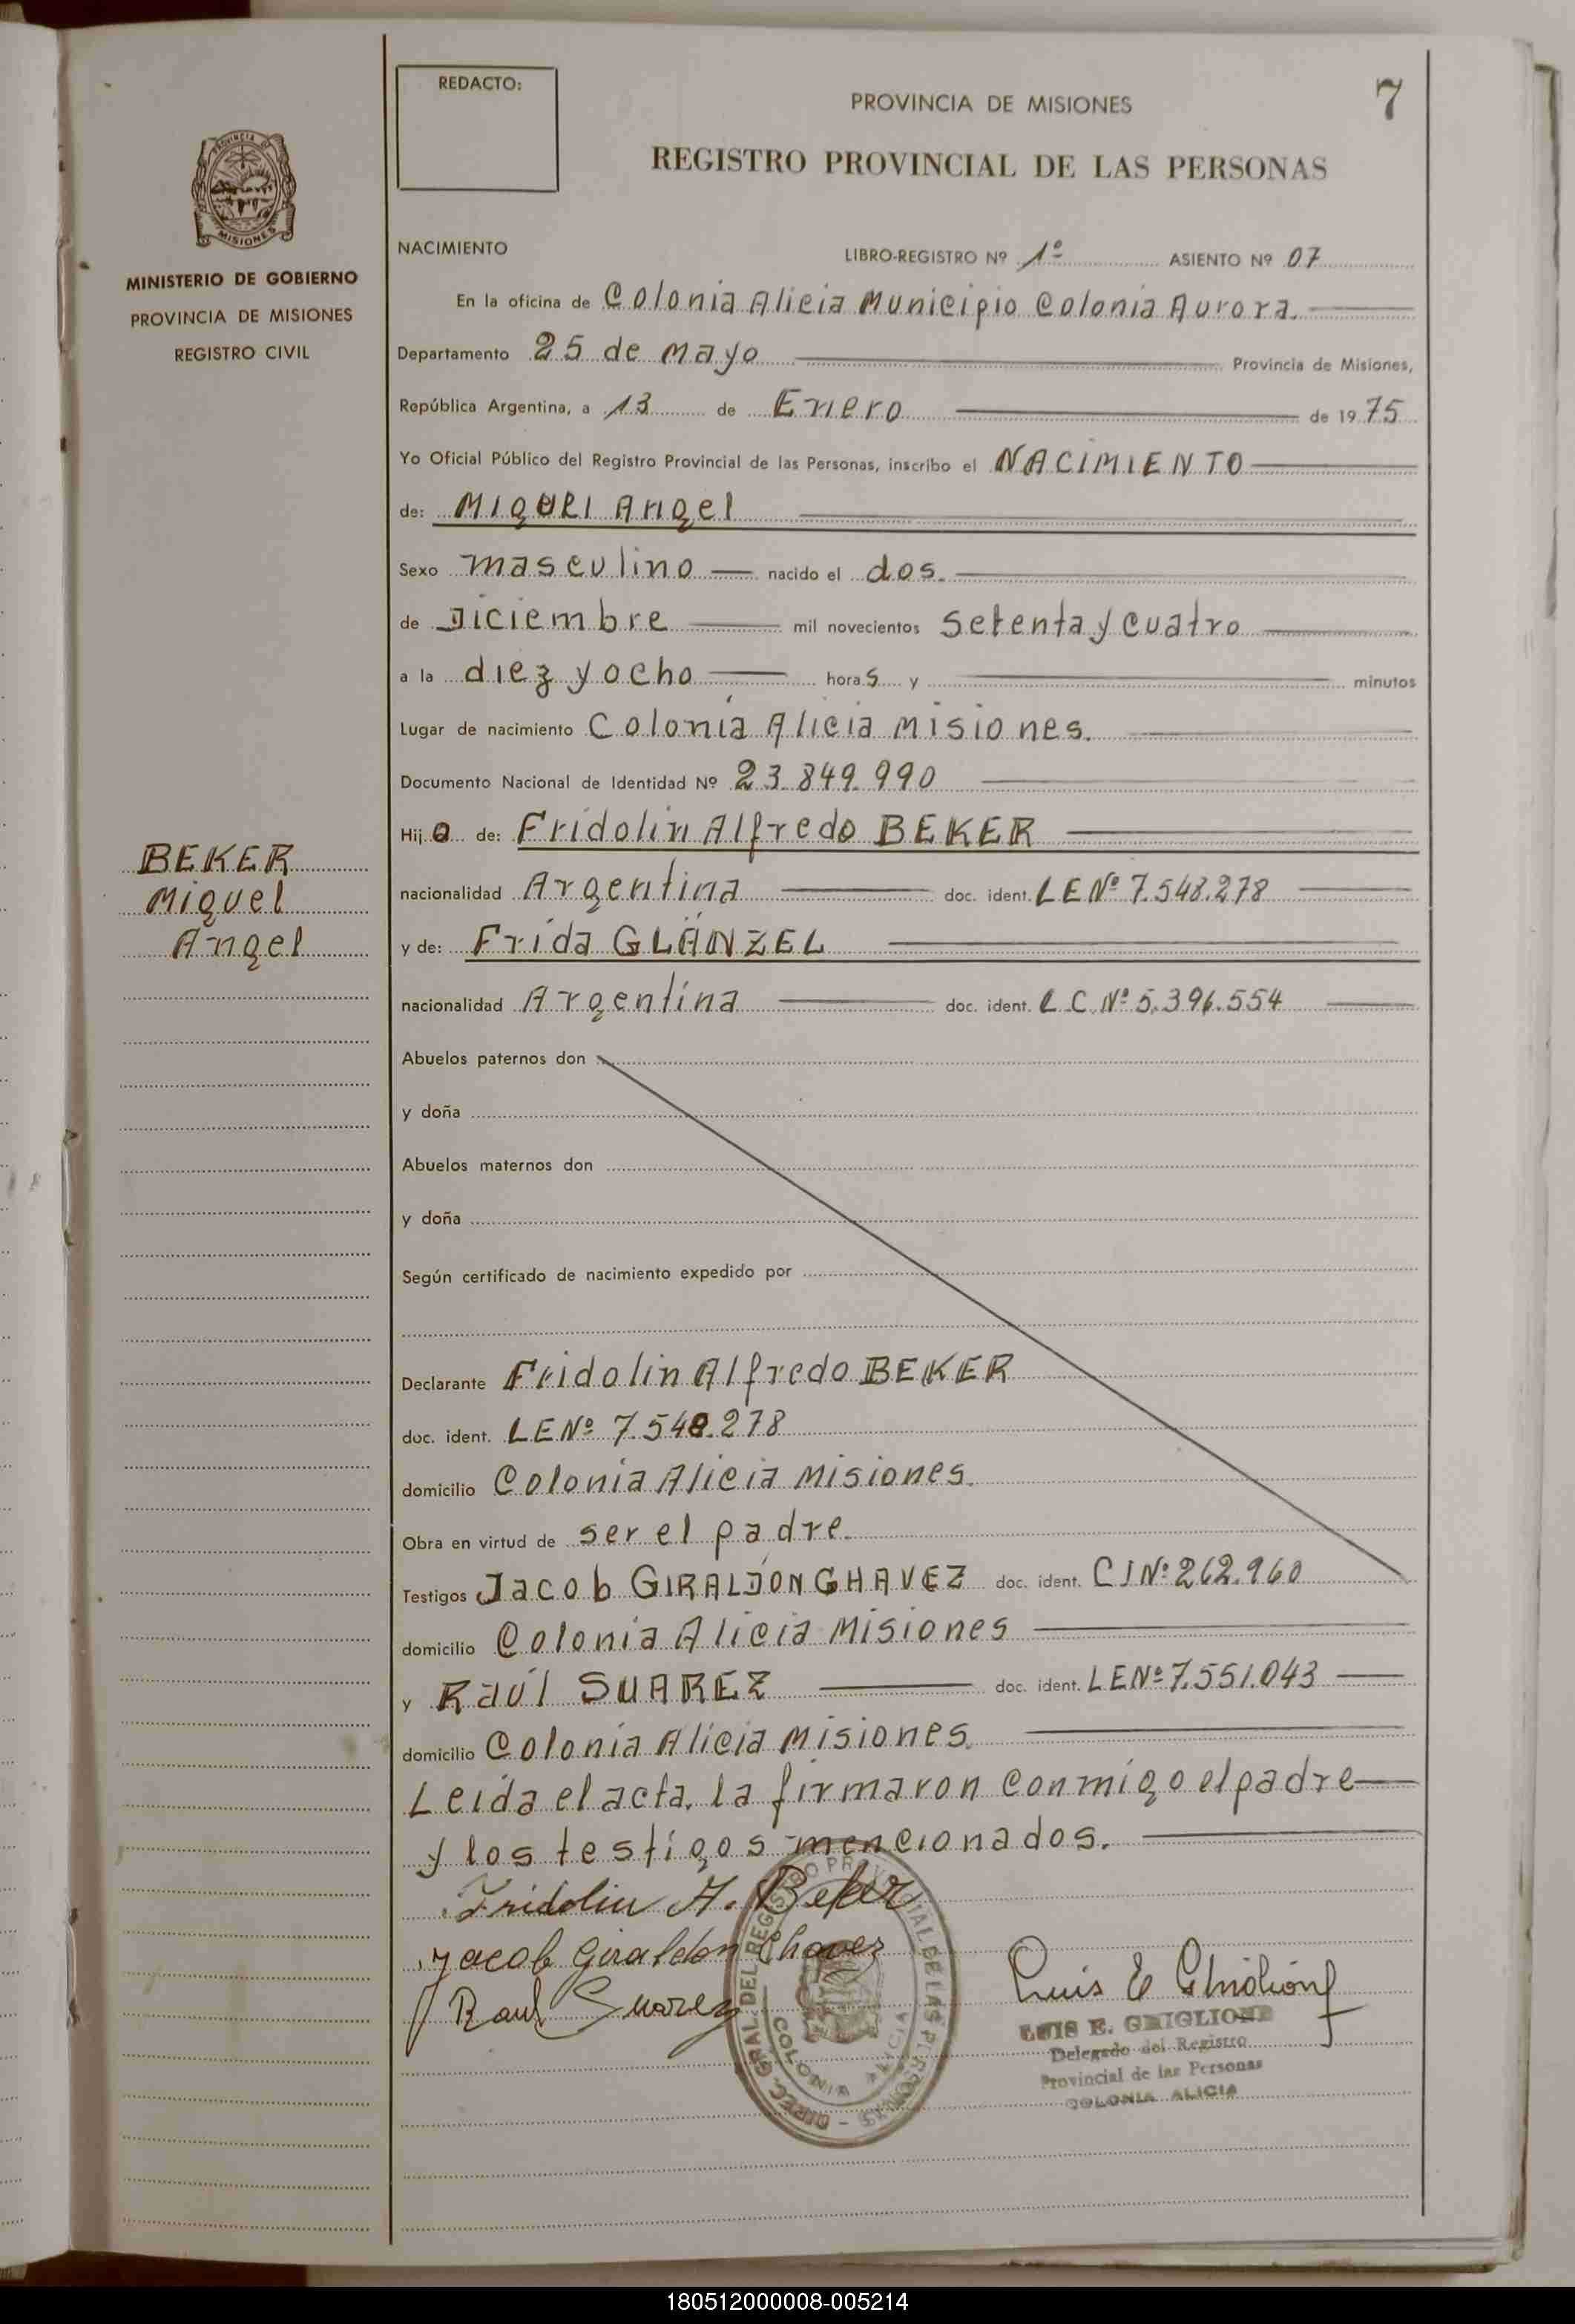 REDACTO:
PROVINCIA DE MISIONES
7
REGISTRO PROVINCIAL DE LAS PERSONAS
MISIONES
MINISTERIO DE GOBIERNO
PROVINCIA DE MISIONES
REGISTRO CIVIL
BEKER
Miguel
Angel
NACIMIENTO LIBRO-REGISTRO Nº 1º ASIENTO Nº 07
En la oficina de Colonia Alicia Municipio Colonia Aurora.
Departamento 25 de Mayo Provincia de Misiones,
República Argentina, a 13 de Enero de 1975
Yo Oficial Público del Registro Provincial de las Personas, inscribo el NACIMIENTO
de: Miguel Angel
Sexo masculino nacido el dos.
de Diciembre mil novecientos setenta y cuatro
a la diez y ocho horas y minutos
Lugar de nacimiento Colonia Alicia Misiones.
Documento Nacional de Identidad Nº 23.849.990
Hijo de: Fridolin Alfredo BEKER
nacionalidad Argentina doc. ident. LE Nº 7.548.278
y de: Frida GLÄNZEL
nacionalidad Argentina doc. ident. L C. Nº 5.396.554
Abuelos paternos don
y doña
Abuelos maternos don
y doña
Según certificado de nacimiento expedido por
Declarante Fridolin Alfredo BEKER
doc. ident. LE Nº 7.548.278
domicilio Colonia Alicia Misiones.
Obra en virtud de ser el padre.
Testigos Jacob GIRALDON CHAVEZ doc. ident. CI Nº 262.960
domicilio Colonia Alicia Misiones
y Raúl SUAREZ doc. ident. LE Nº 7.551.043
domicilio Colonia Alicia Misiones.
Leída el acta, la firmaron conmigo el padre
y los testigos mencionados.
Fridolin A. Beker
Jacob Giraldon Chavez
Raul Suarez
DIREC. GRAL. DEL REGISTRO PROVINCIAL DE LAS PERSONAS -
COLONIA ALICIA
Luis E Ghiglione
LUIS E. GHIGLIONE
Delegado del Registro
Provincial de las Personas
COLONIA ALICIA
180512000008-005214